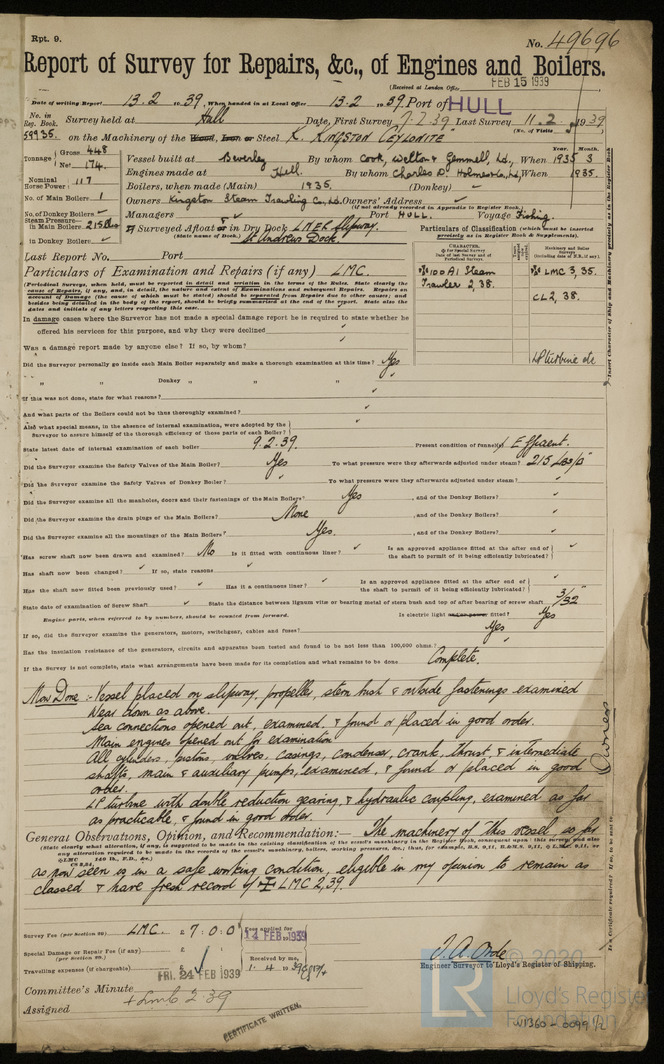 Rpt. 9.
No. 49696
Report of Survey for Repairs, &c., of Engines and Boilers.
(Received at London Office FEB 15 1939
Date of writing Report 13.2 1939. When handed in at Local Office 13.2 1939. Port of HULL
No. in Reg. Book. Survey held at Hull Date, First Survey 7.2.39 Last Survey 11.2 1939
(No. of Visits
59935. on the Machinery of the Wood, Iron or Steel K. "KINGSTON CEYLONITE"
Tonnage Gross 448 Net 174
Vessel built at Beverley By whom Cook, Welton & Gemmell, Ld., When 1935 Year. 3 Month.
Engines made at Hull. By whom Charles D. Holmes & Co, Ld, When 1935.
Nominal Horse Power: 117
Boilers, when made (Main) 1935. (Donkey)
No. of Main Boilers 1
Owners Kingston Steam Trawling Co, Ld. Owners' Address
(if not already recorded in Appendix to Register Book.)
No. of Donkey Boilers
Managers Port HULL. Voyage Fishing.
Steam Pressure— in Main Boilers 215 lbs
in Donkey Boilers
If Surveyed Afloat or in Dry Dock LNER Slipway.
(State name of Dock.) St Andrews Dock.
Particulars of Classification (which must be inserted precisely as in Register Book & Supplements).
Last Report No. Port
Particulars of Examination and Repairs (if any) LMC.
CHARACTER.
100 A1 Steam Trawler 2,38.
LMC 3,35.
CL 2, 38.
LP turbine etc
(Periodical Surveys, when held, must be reported in detail and seriatim in the terms of the Rules. State clearly the cause of Repairs, if any, and, in detail, the nature and extent of Examinations and subsequent Repairs. Repairs on account of Damage (the cause of which must be stated) should be separated from Repairs due to other causes; and besides being detailed in the body of the report, should be briefly summarized at the end of the report. State also the dates and initials of any letters respecting this case.
In damage cases where the Surveyor has not made a special damage report he is required to state whether he
offered his services for this purpose, and why they were declined
Was a damage report made by anyone else? If so, by whom?
Did the Surveyor personally go inside each Main Boiler separately and make a thorough examination at this time? Yes
" " Donkey " " "
If this was not done, state for what reasons?
And what parts of the Boilers could not be thus thoroughly examined?
Also what special means, in the absence of internal examination, were adopted by the
Surveyor to assure himself of the thorough efficiency of those parts of each Boiler?
State latest date of internal examination of each boiler 9.2.39. Present condition of funnel(s) Efficient.
Did the Surveyor examine the Safety Valves of the Main Boiler? Yes To what pressure were they afterwards adjusted under steam? 215 lbs/□"
Did the Surveyor examine the Safety Valves of Donkey Boiler? To what pressure were they afterwards adjusted under steam?
Did the Surveyor examine all the manholes, doors and their fastenings of the Main Boilers? Yes, and of the Donkey Boilers?
Did the Surveyor examine the drain plugs of the Main Boilers? None, and of the Donkey Boilers?
Did the Surveyor examine all the mountings of the Main Boilers? Yes, and of the Donkey Boilers?
Has screw shaft now been drawn and examined? No Is it fitted with continuous liner? Is an approved appliance fitted at the after end of the shaft to permit of it being efficiently lubricated?
Has shaft now been changed? If so, state reasons
Has the shaft now fitted been previously used? Has it a continuous liner? Is an approved appliance fitted at the after end of the shaft to permit of it being efficiently lubricated?
State date of examination of Screw Shaft State the distance between lignum vitæ or bearing metal of stern bush and top of after bearing of screw shaft 3/32
Engine parts, when referred to by numbers, should be counted from forward. Is electric light fitted? Yes
If so, did the Surveyor examine the generators, motors, switchgear, cables and fuses? Yes
Has the insulation resistance of the generators, circuits and apparatus been tested and found to be not less than 100,000 ohms?
If the Survey is not complete, state what arrangements have been made for its completion and what remains to be done Complete.
Now Done :- Vessel placed on slipway, propeller, stern bush & outside fastenings examined
Wear down as above.
Sea connections opened out, examined & found or placed in good order.
Main engines opened out for examination
All cylinders, pistons, valves, casings, condenser, crank, thrust & intermediate
shafts, main & auxiliary pumps, examined, & found or placed in good
order.
LP turbine with double reduction gearing, & hydraulic coupling, examined as far
as practicable & found in good order.
General Observations, Opinion, and Recommendation:— The machinery of this vessel so far
(State clearly what alteration, if any, is suggested to be made in the existing classification of the vessel's machinery in the Register Book, consequent upon this survey, and also any alteration required to be made in the records of the vessel's machinery, boilers, working pressures, &c.; thus, for example,
as now seen is in a safe working condition, eligible in my opinion to remain as
classed & have fresh record of LMC 2,39.
Survey Fee (per Section 29) LMC. £ 7 : 0 : 0 Fees applied for 14 FEB 1939
Special Damage or Repair Fee (if any) (per Section 29.) £
Received by me,
Travelling expenses (if chargeable) £
J. A. Orde
Engineer Surveyor to Lloyd's Register of Shipping.
FRI. 24 FEB 1939
Committee's Minute
Assigned + Lmc 2 39
CERTIFICATE WRITTEN.
Insert Character of Ship and Machinery precisely as in the Register Book
Owners
Is a Certificate required? If so, to be sent to
© 2020
LR
Lloyd's Register
Foundation
W1360-0099 1/2